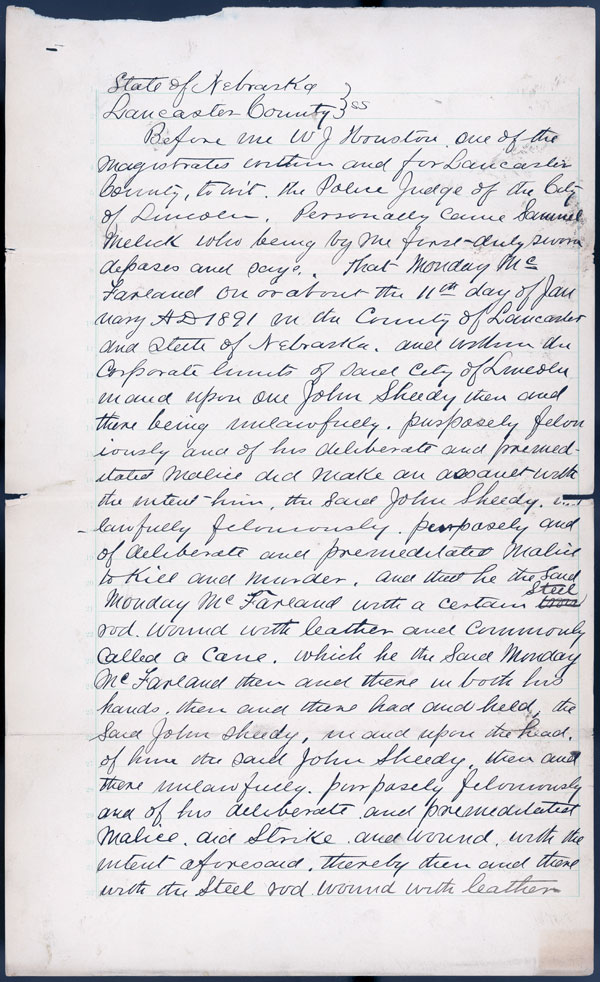 State of Nebraska }
Lancaster County } ss
Before me W J Houston one of the
Magistrates within and for Lancaster
County, to wit. the Police Judge of the City
of Lincoln. Personally came Samuel
Melick who being by me first duly sworn
deposes and says. That Monday Mc
Farland on or about the 11th day of Jan
uary AD 1891 in the County of Lancaster
and State of Nebraska. and within the
Corporate limits of said City of Lincoln
in and upon one John Sheedy then and
there being unlawfully. purposely felon
iously and of his deliberate and premed-
itated Malice did make an assault with
the intent him, the said John Sheedy.
lawfully feloniously. purposely and
of deliberate and premeditated Malice
to Kill and murder. and that he the Said
Monday McFarland with a certain Steel
rod. wound with leather and Commonly
Called a Cane. which he the Said Monday
McFarland then and there in both his
hands. then and there had and held, the
Said John Sheedy, in and upon the head.
of him the said John Sheedy, then and
there unlawfully. purposely feloniously
and of his deliberate and premeditated
Malice. did Strike and wound. with the
intent aforesaid. thereby then and there
with the Steel rod wound with leather